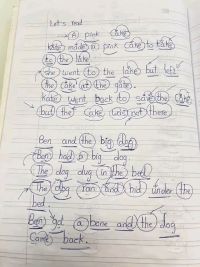 Let's read
A pink Cake
Kate made a pink cake to take
to the lake
She went to the lake but left
the cake at the gate.
Kate went back to save the cake
but the cake was not there.
Ben and the big dog
Ben had a big dog.
The dog dug in the bed
The dog ran and hid under the
bed
Ben got a bone and the dog
Came back.